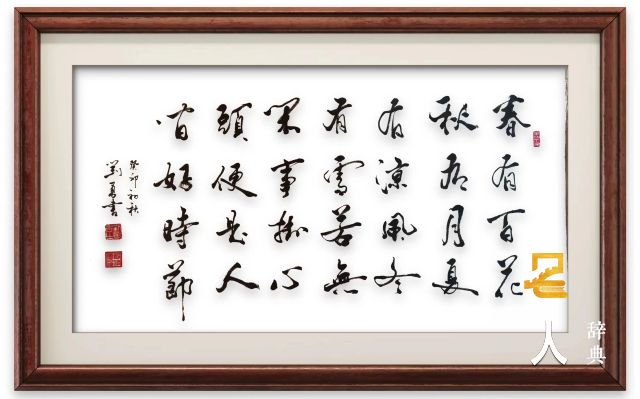 春有百花
秋有月夏
有涼風冬
有雪若無
閑事掛心
頭便是人
間好時節
癸卯初秋
劉勇書
名人
辞典